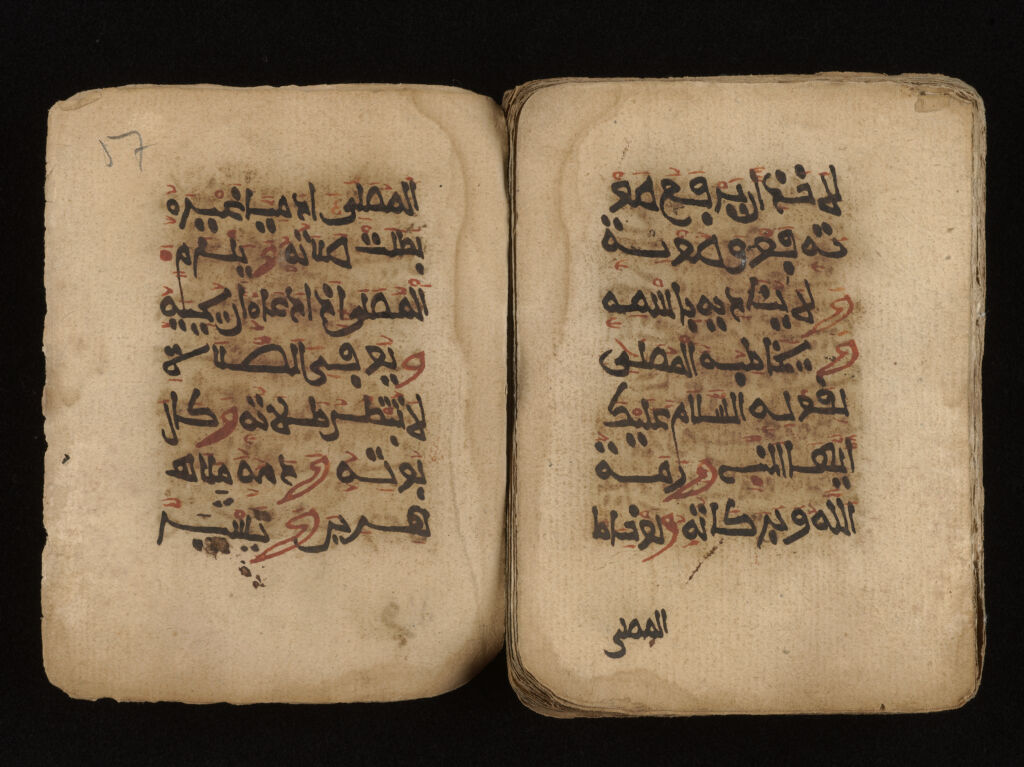 لاحد ان يرفع صو
ته فوق صوته
ولا يناديه باسمه
ويخاطبه المصلى
بقوله السلام عليك
ايها النبى ورحمة
الله وبركاته ولو خاطب
المصلى
57
المصلى ادميا غيره
بطلت صلاته ويلزم
المصلى اذا دعاه ان يجيبه
وهو فى الصلاة
لا تبطل صلاته وكان
بوله ودمه طا
هرين